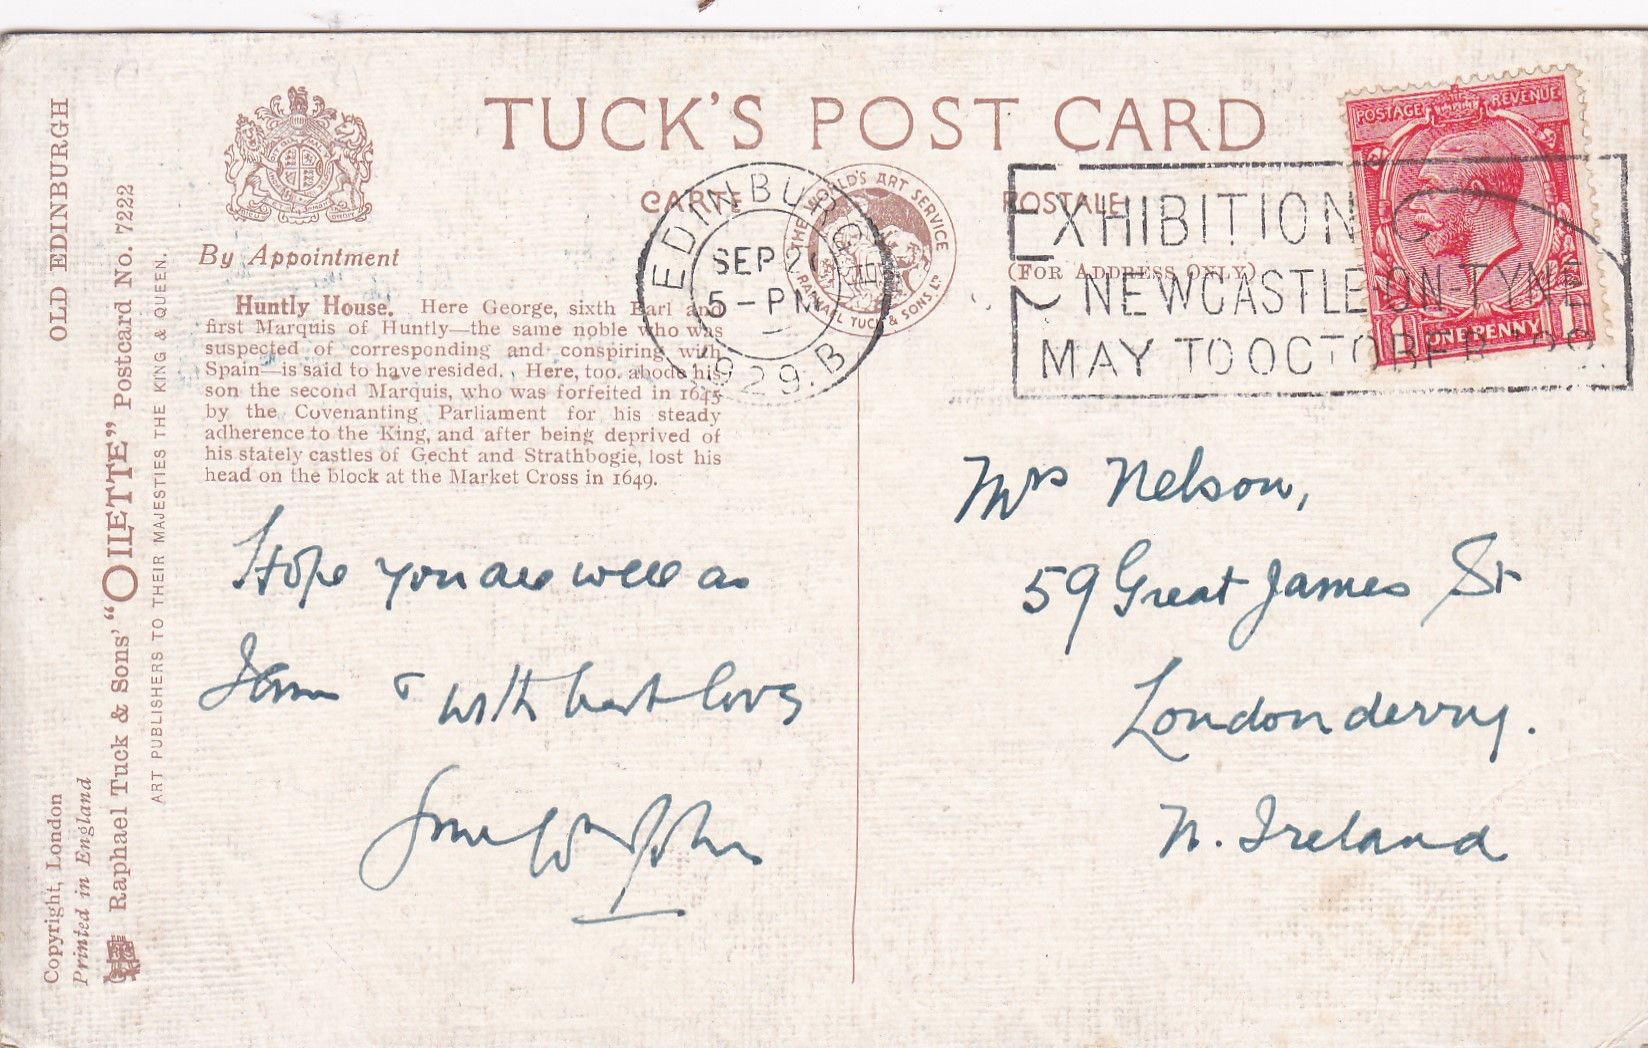 TUCK'S POST CARD
CARTE POSTALE
(FOR ADDRESS ONLY)
By Appointment
Huntly House. Here George, sixth Earl and
first Marquis of Huntly—the same noble who was
suspected of corresponding and conspiring with
Spain—is said to have resided. Here, too. abode his
son the second Marquis, who was forfeited in 1645
by the Covenanting Parliament for his steady
adherence to the King, and after being deprived of
his stately castles of Gecht and Strathbogie, lost his
head on the block at the Market Cross in 1649.
OLD EDINBURGH
Raphael Tuck & Sons' "OILETTE" Postcard No. 7222
ART PUBLISHERS TO THEIR MAJESTIES THE KING & QUEEN.
Copyright, London
Printed in England
THE WORLD'S ART SERVICE
RAPHAEL TUCK & SONS LTD
EDINBURGH
SEP 2
5-PM
1929.B
EXHIBITION
NEWCASTLE-ON-TYNE
MAY TO OCTOBER
POSTAGE REVENUE
1 ONE PENNY 1
Hope you are well as
& with best love
John
Mrs Nelson,
59 Great James St
Londonderry.
N. Ireland